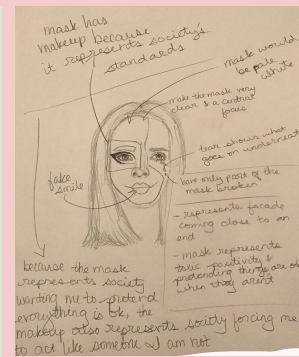 mask has
makeup because
it represents society's
standards
mask would
be pale
white
make the mask very
clear & a central
focus
tear shows what
goes on underneath
fake
smile
have only part of the
mask broken
- represents facade
coming close to an
end
- mask represents
toxic positivity &
pretending things are ok
when they arent
because the mask
represents society
wanting me to pretend
everything is ok, the
makeup also represents society forcing me
to act like someone I am not